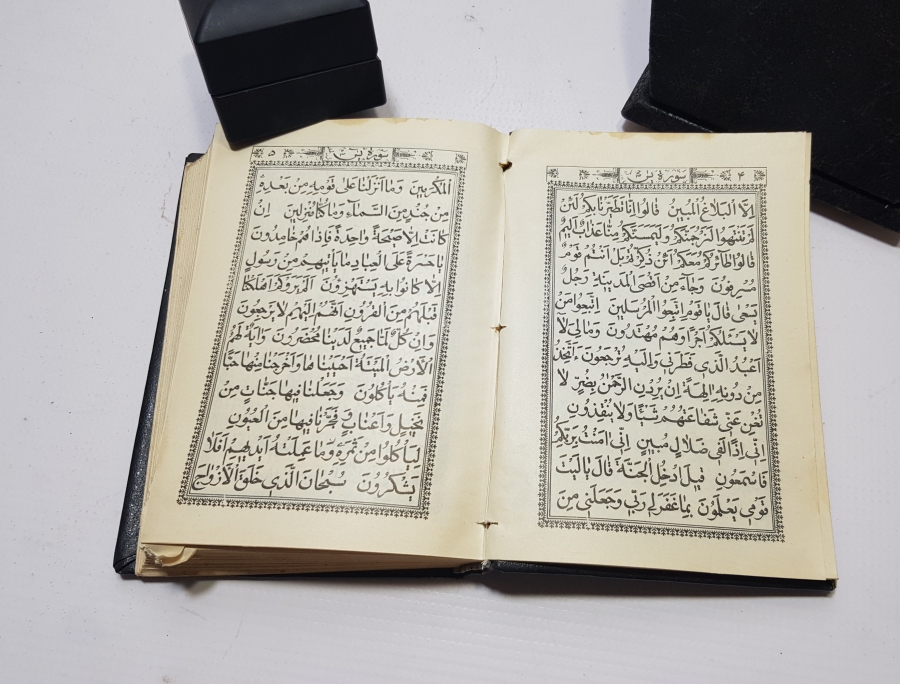 ٤ سورة يٰسٓ
اِلَّا الْبَلَاغُ الْمُبِينُ قَالُوا اِنَّا تَطَيَّرْنَا بِكُمْ لَئِنْ
لَمْ تَنْتَهُوا لَنَرْجُمَنَّكُمْ وَلَيَمَسَّنَّكُمْ مِنَّا عَذَابٌ اَلِيمٌ
قَالُوا طَائِرُكُمْ مَعَكُمْ اَئِنْ ذُكِّرْتُمْ بَلْ اَنْتُمْ قَوْمٌ
مُسْرِفُونَ وَجَاءَ مِنْ اَقْصَى الْمَدِينَةِ رَجُلٌ
يَسْعَى قَالَ يَا قَوْمِ اتَّبِعُوا الْمُرْسَلِينَ اِتَّبِعُوا مَنْ
لَا يَسْئَلُكُمْ اَجْرًا وَهُمْ مُهْتَدُونَ وَمَا لِيَ لَا
اَعْبُدُ الَّذِي فَطَرَنِي وَاِلَيْهِ تُرْجَعُونَ ءَاَتَّخِذُ
مِنْ دُونِهِ اٰلِهَةً اِنْ يُرِدْنِ الرَّحْمٰنُ بِضُرٍّ لَا
تُغْنِ عَنِّي شَفَاعَتُهُمْ شَيْئًا وَلَا يُنْقِذُونِ
اِنِّي اِذًا لَفِي ضَلَالٍ مُبِينٍ اِنِّي اٰمَنْتُ بِرَبِّكُمْ
فَاسْمَعُونِ قِيلَ ادْخُلِ الْجَنَّةَ قَالَ يَا لَيْتَ
قَوْمِي يَعْلَمُونَ بِمَا غَفَرَ لِي رَبِّي وَجَعَلَنِي مِنَ
سورة يٰسٓ ٥
الْمُكْرَمِينَ وَمَا اَنْزَلْنَا عَلَى قَوْمِهِ مِنْ بَعْدِهِ
مِنْ جُنْدٍ مِنَ السَّمَاءِ وَمَا كُنَّا مُنْزِلِينَ اِنْ
كَانَتْ اِلَّا صَيْحَةً وَاحِدَةً فَاِذَا هُمْ خَامِدُونَ
يَا حَسْرَةً عَلَى الْعِبَادِ مَا يَأْتِيهِمْ مِنْ رَسُولٍ
اِلَّا كَانُوا بِهِ يَسْتَهْزِؤُنَ اَلَمْ يَرَوْا كَمْ اَهْلَكْنَا
قَبْلَهُمْ مِنَ الْقُرُونِ اَنَّهُمْ اِلَيْهِمْ لَا يَرْجِعُونَ
وَاِنْ كُلٌّ لَمَّا جَمِيعٌ لَدَيْنَا مُحْضَرُونَ وَاٰيَةٌ لَهُمُ
الْاَرْضُ الْمَيْتَةُ اَحْيَيْنَاهَا وَاَخْرَجْنَا مِنْهَا حَبًّا
فَمِنْهُ يَأْكُلُونَ وَجَعَلْنَا فِيهَا جَنَّاتٍ مِنْ
نَخِيلٍ وَاَعْنَابٍ وَفَجَّرْنَا فِيهَا مِنَ الْعُيُونِ
لِيَأْكُلُوا مِنْ ثَمَرِهِ وَمَا عَمِلَتْهُ اَيْدِيهِمْ اَفَلَا
يَشْكُرُونَ سُبْحَانَ الَّذِي خَلَقَ الْاَزْوَاجَ